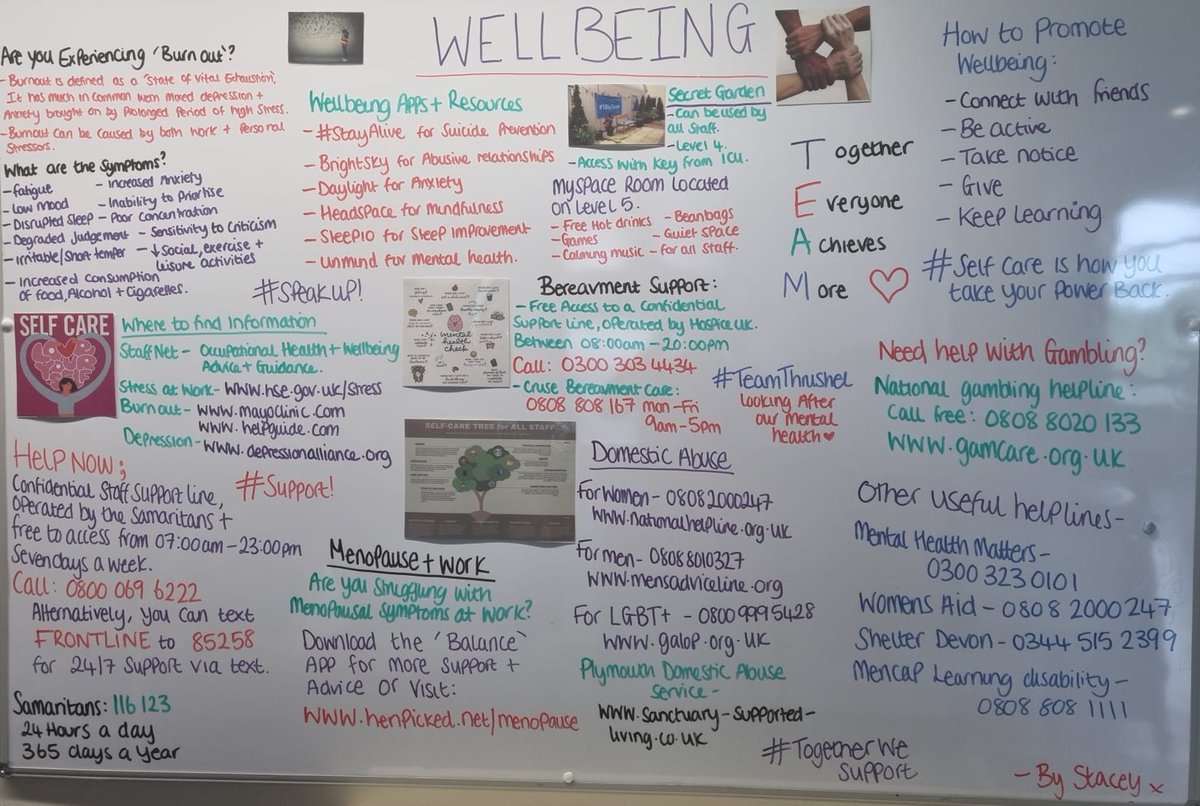 WELLBEING
Are you Experiencing 'Burn out'?
- Burnout is defined as a 'State of Vital Exhaustion',
It has much in common with mixed depression +
Anxiety brought on by Prolonged Period of high Stress.
- Burnout can be caused by both work + Personal
Stressors.
What are the Symptoms?
- fatigue
- Low mood
- Disrupted Sleep
- Degraded Judgement
- irritable/Short temper
- Increased consumption
of food, Alcohol + Cigarettes.
- Increased Anxiety
- Inability to Prioritise
- Poor concentration
- Sensitivity to Criticism
- ↓ Social, exercise +
leisure activities
#SPEAKUP!
SELF CARE
Where to find Information
StaffNet - Occupational Health + Wellbeing
Advice + Guidance.
Stress at Work - www.hse.gov.uk/stress
Burnout - www.mayoclinic.com
www.helpguide.com
Depression - www.depressionalliance.org
HELP NOW;
Confidential Staff Support line,
Operated by the Samaritans +
free to access from 07:00am - 23:00pm
Seven days a week.
Call: 0800 069 6222
Alternatively, you can text
FRONTLINE to 85258
for 24/7 Support via text.
#Support!
Samaritans: 116 123
24 Hours a day
365 days a year
Wellbeing Apps + Resources
- #StayAlive for Suicide Prevention
- BrightSky for Abusive relationships
- Daylight for Anxiety
- HeadSpace for mindfulness
- Sleepio for Sleep improvement
- Unmind for mental health.
mental
health
check
SELF-CARE TREE for ALL STAFF
Menopause + Work
Are you Struggling with
Menopausal Symptoms at work?
Download the 'Balance'
App for more support +
Advice or Visit:
www.henpicked.net/menopause
Secret Garden
- Can be used by
all Staff.
- Level 4.
- Access with key from ICU.
MySpace Room Located
on Level 5.
- Free Hot drinks
- Games
- Calming music
- Beanbags
- Quiet Space
- for all Staff.
Bereavment Support:
- Free Access to a Confidential
Support Line, operated by Hospice UK.
Between 08:00am - 20:00pm
Call: 0300 303 4434
- Cruse Bereavment Care:
0808 808 167 mon-Fri
9am-5pm
#TeamThrushel
Looking After
our mental
health ♥
Domestic Abuse
For Women - 08082000247
www.nationalhelpline.org.uk
For men - 0808 8010327
www.mensadviceline.org
For LGBT+ - 0800 9995428
www.galop.org.uk
Plymouth Domestic Abuse
Service -
www.sanctuary-supported-
living.co.uk
#TogetherWe
Support
Together
Everyone
Achieves
More
How to Promote
Wellbeing:
- Connect with friends
- Be active
- Take notice
- Give
- Keep Learning
#Self Care is how you
take your Power Back.
Need help with Gambling?
National gambling helpline:
Call free: 0808 8020 133
www.gamcare.org.uk
Other useful helplines -
Mental Health Matters -
0300 323 0101
Womens Aid - 0808 2000 247
Shelter Devon - 0344 515 2399
Mencap Learning disability -
0808 808 1111
- By Stacey x